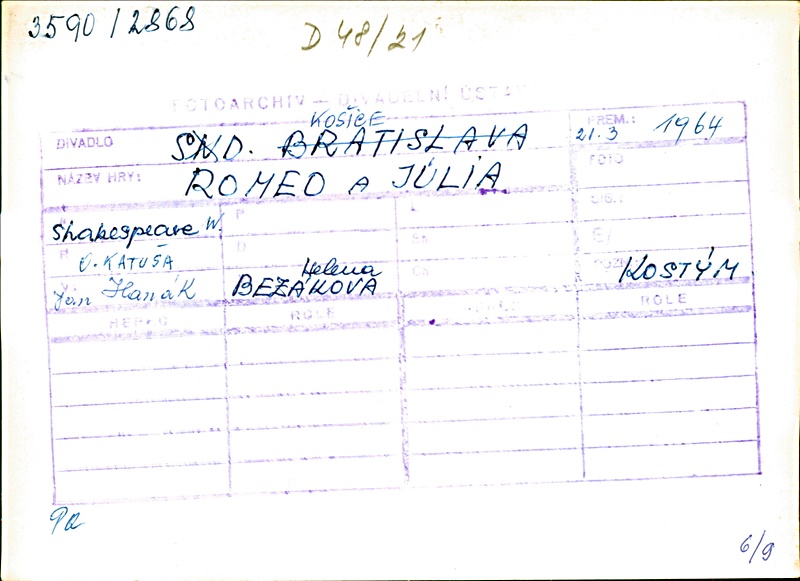 3590/2868
D 48/21
FOTOARCHÍV – DIVADELNÍ ÚSTAV
KOŠICE
DIVADLO SND. BRATISLAVA PREM.: 21.3 1964
NÁZEV HRY: ROMEO A JÚLIA FOTO
Shakespeare W.
O. KATUŠA
Ján Hanák Helena BEZÁKOVÁ KOSTÝM
HEREC ROLE ROLE
6/9